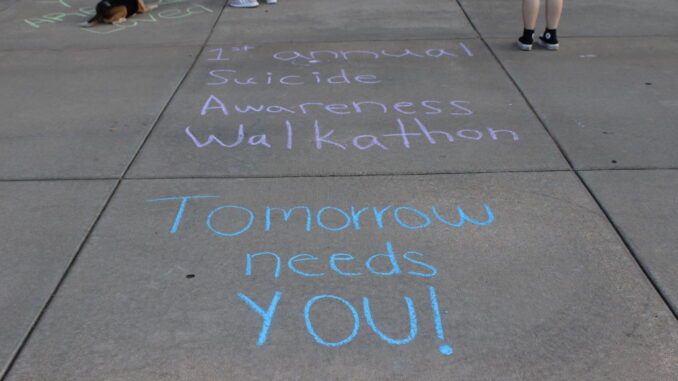 1st annual
Suicide
Awareness
Walkathon
Tomorrow
needs
YOU!